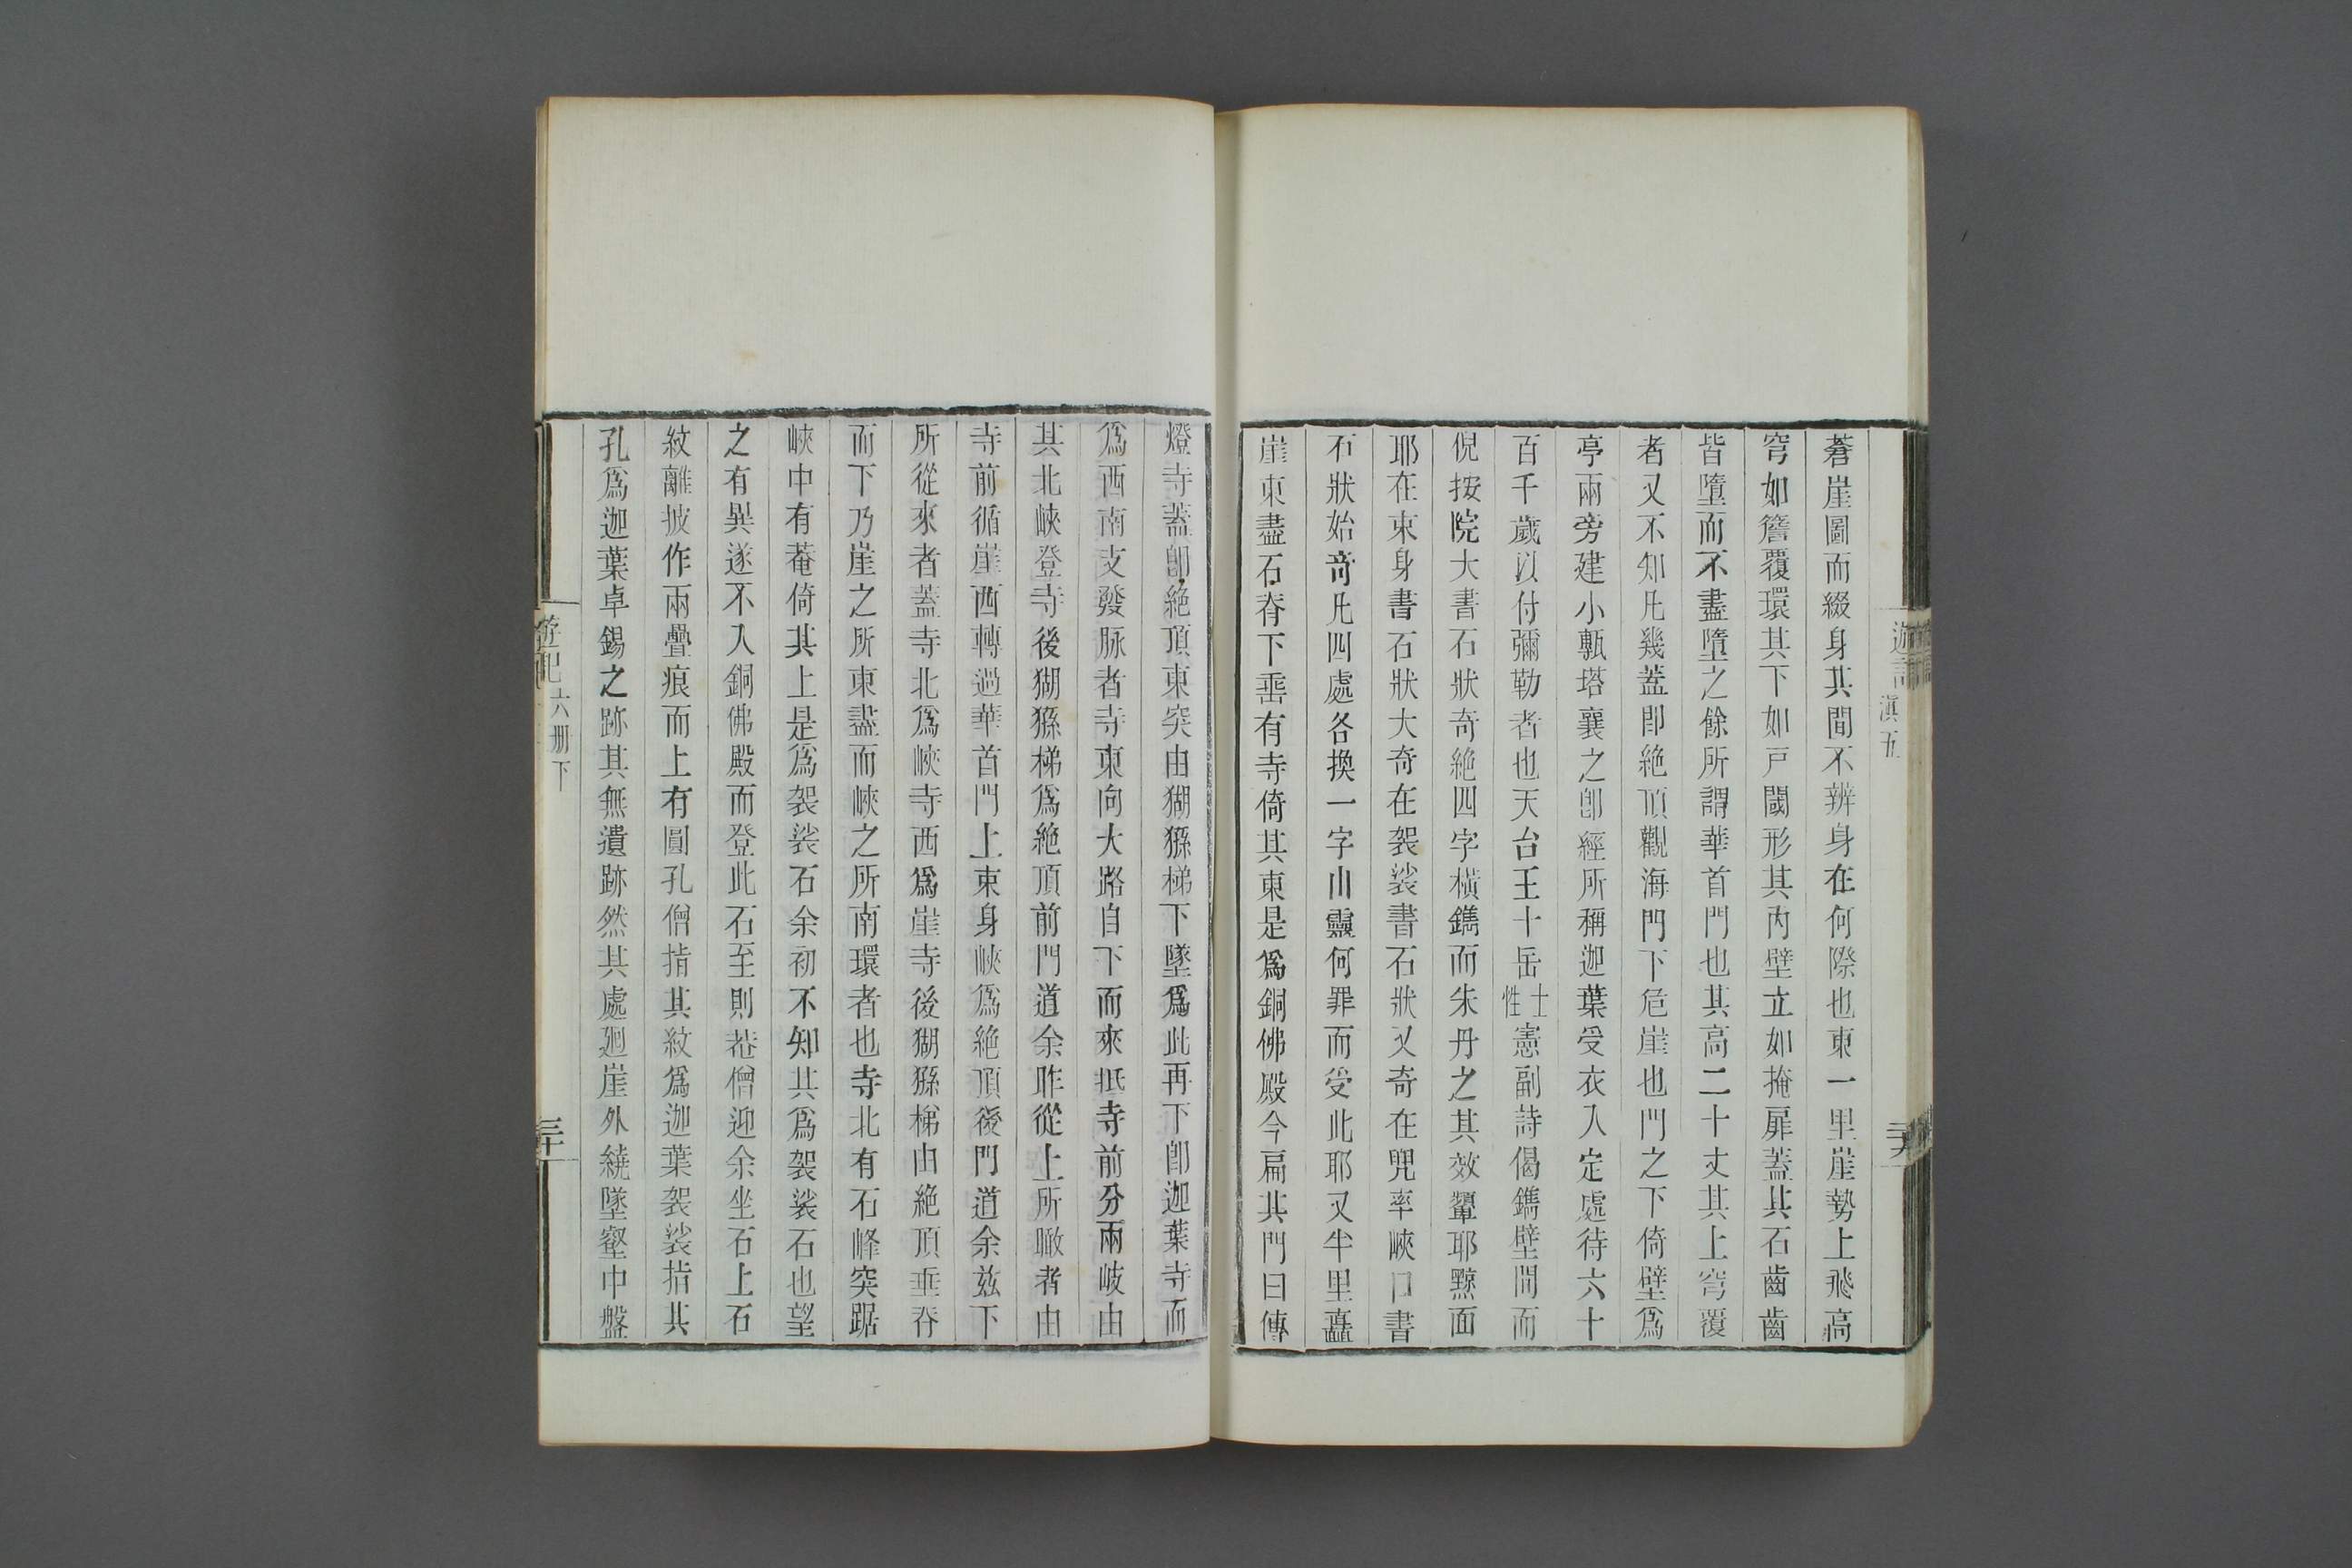 遊記 滇五 二十九
菴崖圖而綴身其間不辨身在何際也東一里崖勢上飛高
穹如簷覆環其下如戸閾形其內壁立如掩扉蓋其石齒齒
皆墮而不盡墮之餘所謂華首門也其高二十丈其上穹覆
者又不知凡幾蓋卽絶頂觀海門下危崖也門之下倚壁爲
亭兩旁建小甎塔襄之卽經所稱迦葉受衣入定處待六十
百千歲以付彌勒者也天台王十岳士性憲副詩偈鐫壁間而
倪按院大書石狀奇絶四字橫鐫而朱丹之其效顰耶黥面
耶在束身書石狀大奇在袈裟書石狀又奇在兜率峽口書
石狀始奇凡四處各換一字山靈何罪而受此耶又半里矗
崖東盡石脊下垂有寺倚其東是爲銅佛殿今扁其門曰傳
燈寺蓋卽絶頂東突由猢猻梯下墜爲此再下卽迦葉寺而
爲西南支發脉者寺東向大路自下而來抵寺前分兩岐由
其北峽登寺後猢猻梯爲絶頂前門道余昨從上所瞰者由
寺前循崖西轉過華首門上束身峽爲絶頂後門道余兹下
所從來者蓋寺北爲峽寺西爲崖寺後猢猻梯由絶頂垂脊
而下乃崖之所東盡而峽之所南環者也寺北有石峰突踞
峽中有菴倚其上是爲袈裟石余初不知其爲袈裟石也望
之有異遂不入銅佛殿而登此石至則菴僧迎余坐石上石
紋離披作兩疊痕而上有圓孔僧指其紋爲迦葉袈裟指其
孔爲迦葉卓錫之跡其無遺跡然其處迴崖外繞墜壑中盤
遊記 六册下 三十